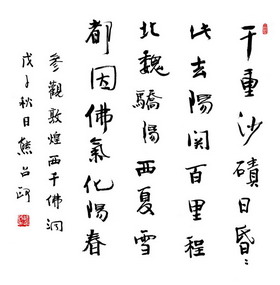 千重沙磧日昏〻
此去陽関百里程
北魏驕陽西夏雪
都因佛氣化陽春
参觀敦煌西千佛洞
戊子秋日熊召政